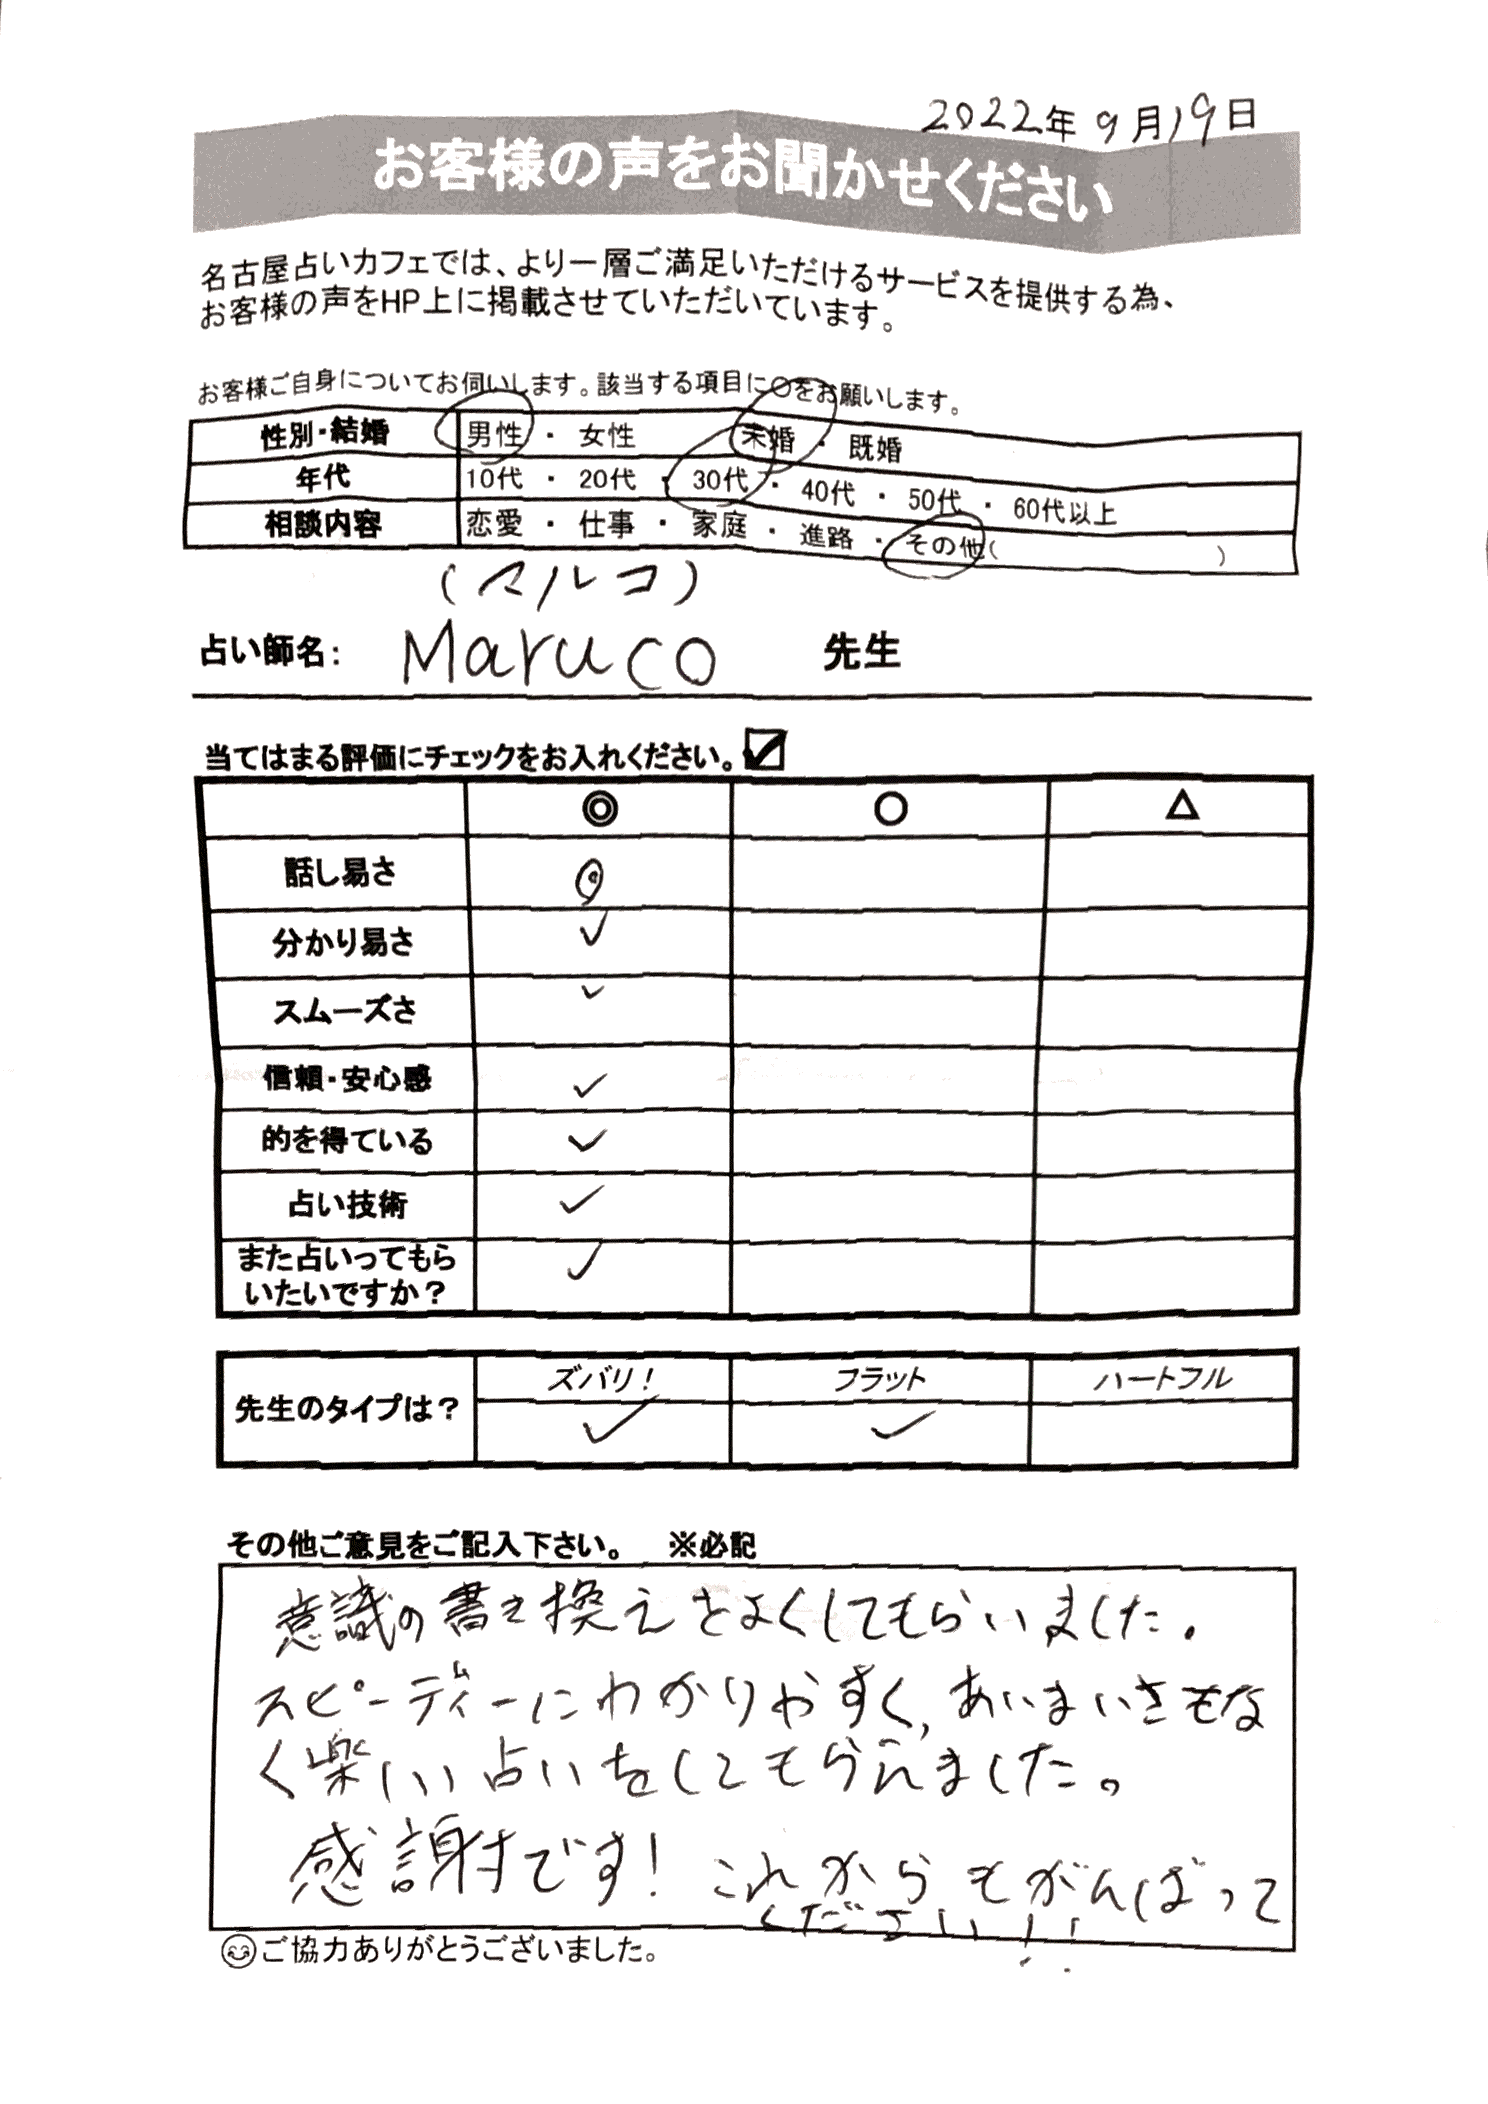 2022年9月19日
お客様の声をお聞かせください
名古屋占いカフェでは、より一層ご満足いただけるサービスを提供する為、
お客様の声をHP上に掲載させていただいています。
お客様ご自身についてお伺いします。該当する項目に○をお願いします。
性別・結婚 男性 ・ 女性 未婚 ・ 既婚
年代 10代 ・ 20代 ・ 30代 ・ 40代 ・ 50代 ・ 60代以上
相談内容 恋愛 ・ 仕事 ・ 家庭 ・ 進路 ・ その他( )
(マルコ)
占い師名: Maruco 先生
当てはまる評価にチェックをお入れください。☑
◎ ○ △
話し易さ ◎
分かり易さ ✓
スムーズさ ✓
信頼・安心感 ✓
的を得ている ✓
占い技術 ✓
また占いってもら
いたいですか？ ✓
ズバリ！ フラット ハートフル
先生のタイプは？ ✓ ✓
その他ご意見をご記入下さい。 ※必記
意識の書き換えをよくしてもらいました。
スピーディーにわかりやすく、あいまいさもな
く楽しい占いをしてもらえました。
感謝です！ これからもがんばって
ください!!
ご協力ありがとうございました。